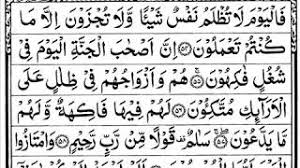 فَالْيَوْمَ لَا تُظْلَمُ نَفْسٌ شَيْئًا وَّلَا تُجْزَوْنَ اِلَّا مَا
كُنْتُمْ تَعْمَلُوْنَ ﴿۵۴﴾ اِنَّ اَصْحٰبَ الْجَنَّةِ الْيَوْمَ فِيْ
شُغُلٍ فٰكِهُوْنَ ﴿۵۵﴾ هُمْ وَاَزْوَاجُهُمْ فِيْ ظِلٰلٍ عَلَى
الْاَرَآئِكِ مُتَّكِـُٔوْنَ ﴿۵۶﴾ لَهُمْ فِيْهَا فَاكِهَةٌ وَّلَهُمْ
مَّا يَدَّعُوْنَ ﴿۵۷﴾ سَلٰمٌ قَوْلًا مِّنْ رَّبٍّ رَّحِيْمٍ ﴿۵۸﴾ وَامْتَازُوا